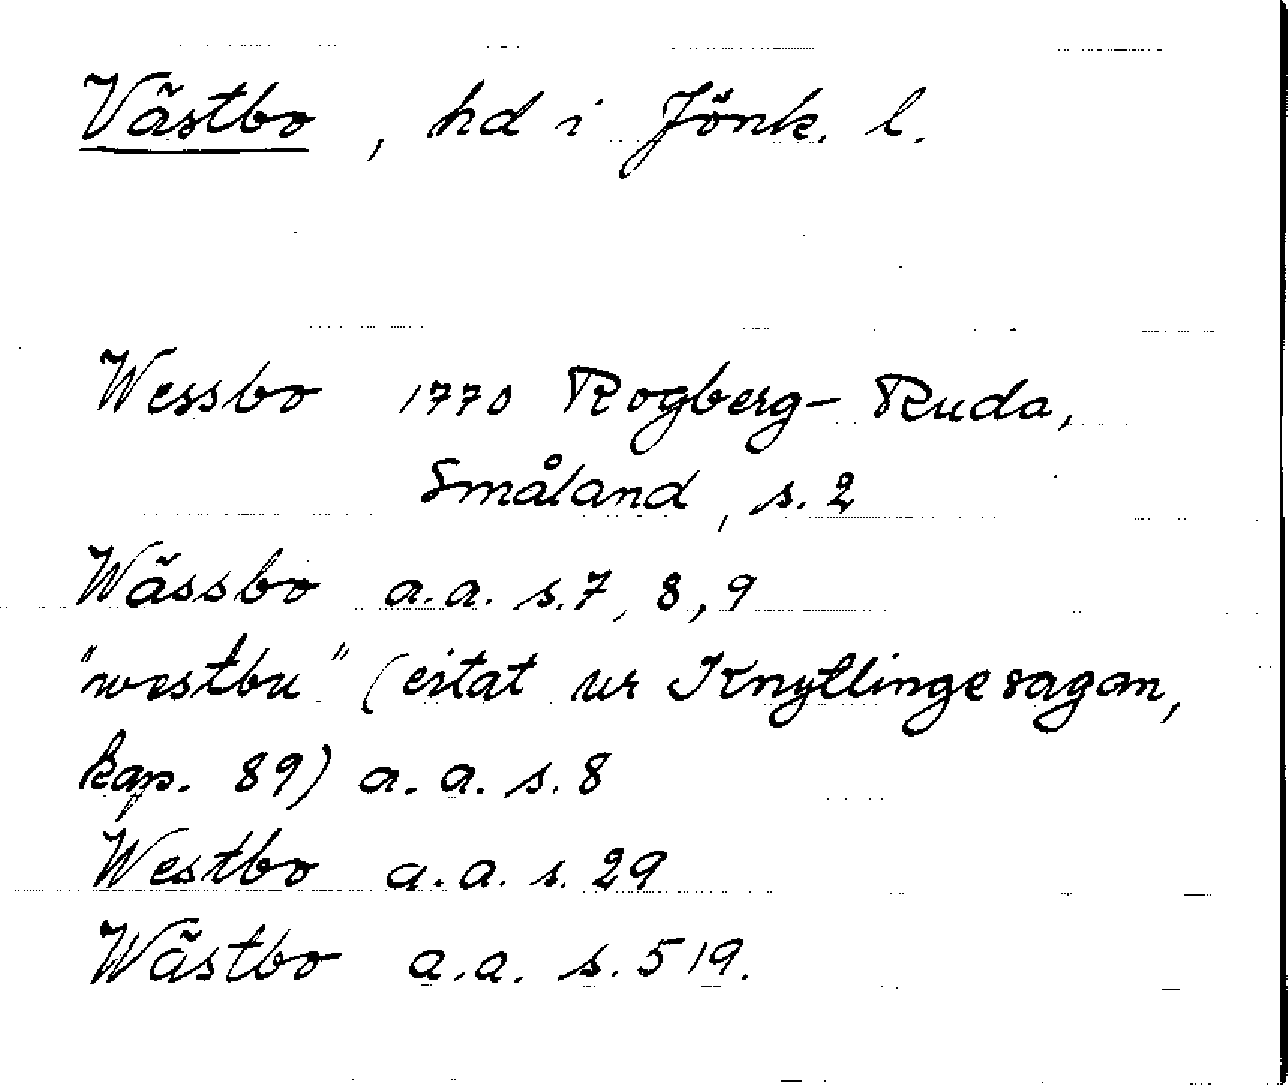 Västbo, hd i Jönk. l.
Wessbo 1770 Rogberg-Ruda,
Småland, s. 2
Wässbo a.a. s. 7, 8, 9
"westbu" (citat ur Knytlingesagan,
kap. 89) a. a. s. 8
Westbo a.a. s. 29
Wästbo a.a. s. 519.